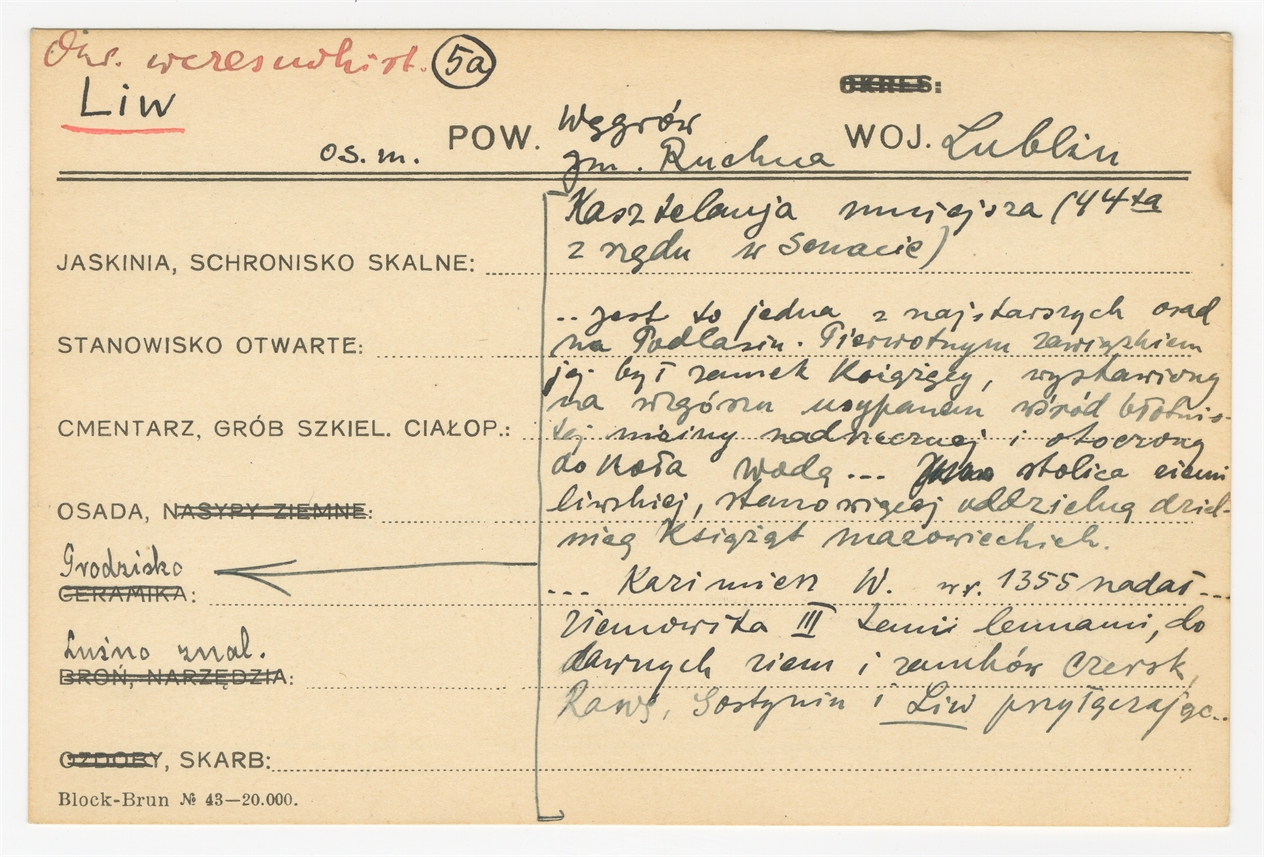 Okr. wczesnohist. 5a
Liw
OKRES:
os. m. POW. Węgrów WOJ. Lublin
gm. Ruchna
Kasztelanja mniejsza (44ta
z rzędu w Senacie)
JASKINIA, SCHRONISKO SKALNE:
... jest to jedna z najstarszych osad
STANOWISKO OTWARTE:
na Podlasiu. Pierwotnym zawiązkiem
jej był zamek Książęcy, wystawiony
na wzgórzu usypanem wśród błotnis-
CMENTARZ, GRÓB SZKIEL. CIAŁOP.:
tej niziny nadrzecznej i otoczony
do koła wodą ... stolica ziemi
liwskiej, stanowiącej oddzielną dziel-
OSADA, NASYPY ZIEMNE:
nicę Książąt mazowieckich.
Grodzisko
CERAMIKA:
... Kazimierz W. w r. 1355 nadał ...
Ziemowita III temi lennami, do
Luźno znal.
BROŃ, NARZĘDZIA:
dawnych ziem i zamków Czersk,
Rawę, Gostynin i Liw przyłączając..
OZDOBY, SKARB:
Block-Brun № 43—20.000.